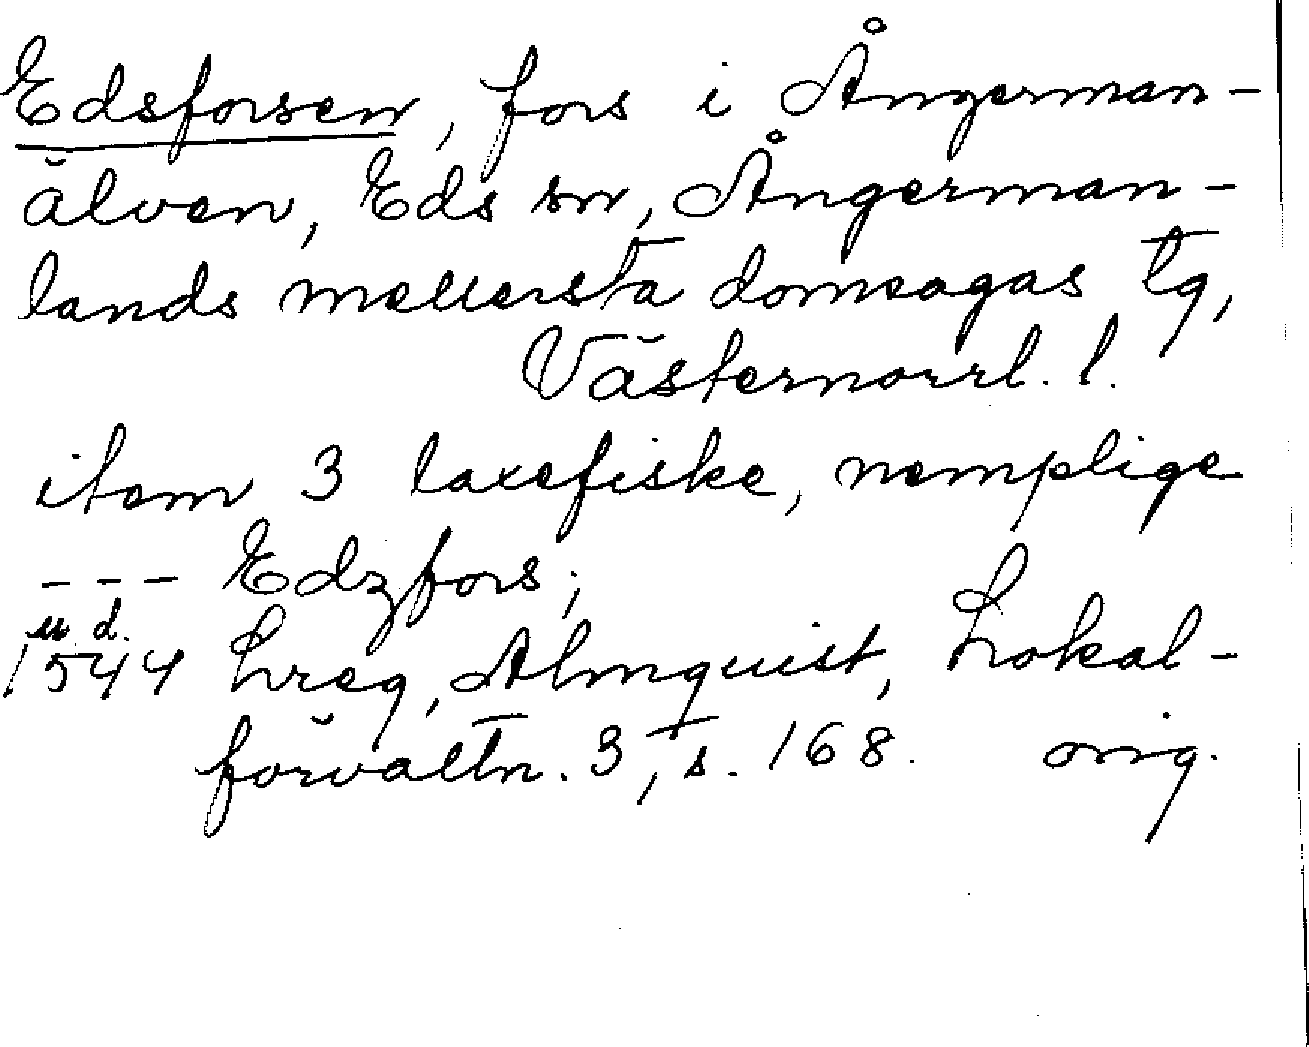 Edsforsen, fors i Ångerman-
älven, Eds sn, Ångerman-
lands mellersta domsagas tg,
Västernorrl. l.
item 3 laxefiske, nemplige
--- Edzfors;
u. d.
1544 Lreg, Almquist, Lokal-
förvaltn. 3, s. 168. orig.